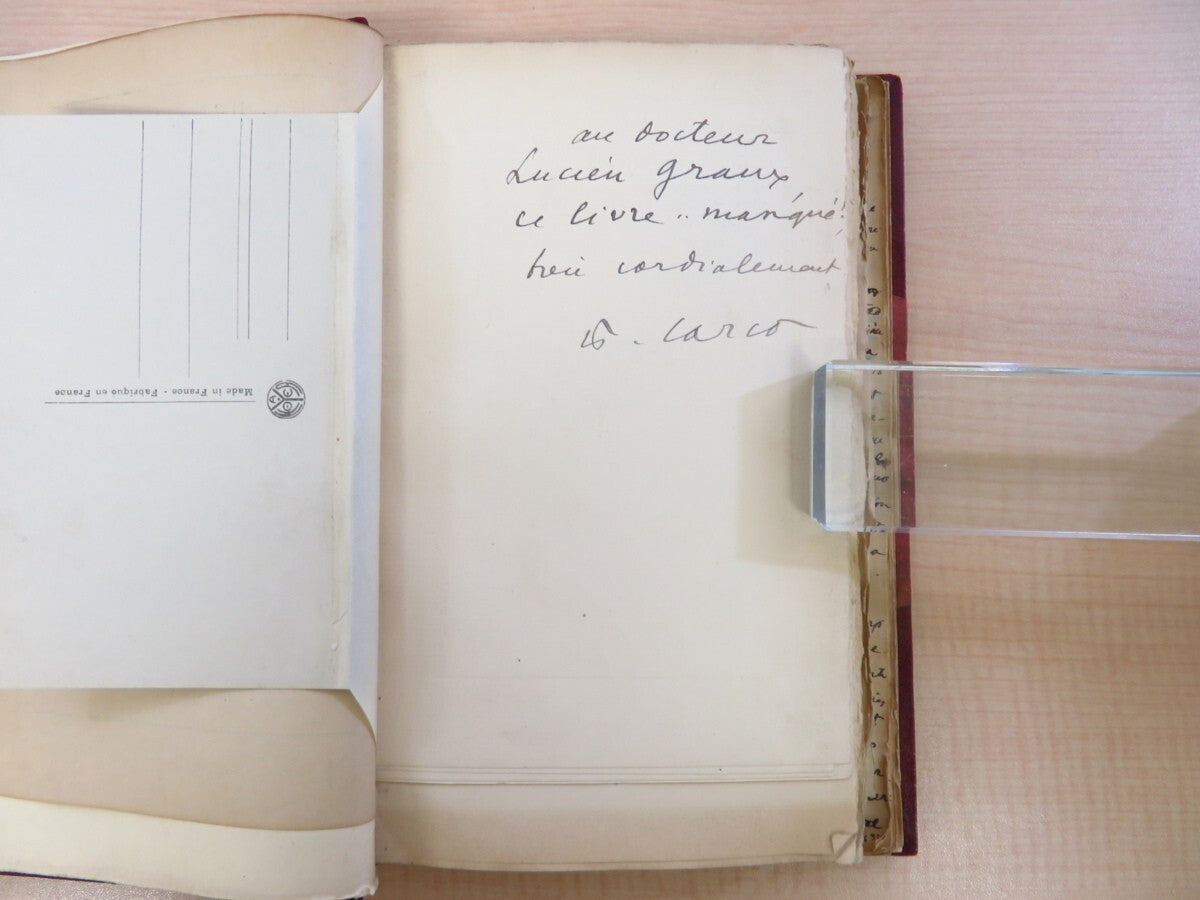 Made in France - Fabriqué en France
au docteur
Lucien Graux
ce livre .. manqué!
bien cordialement
F. Carco